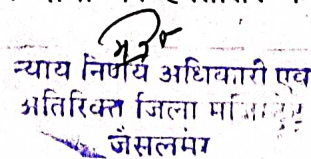 न्याय निर्णय अधिकारी एव
अतिरिक्त जिला
जैसलमेर